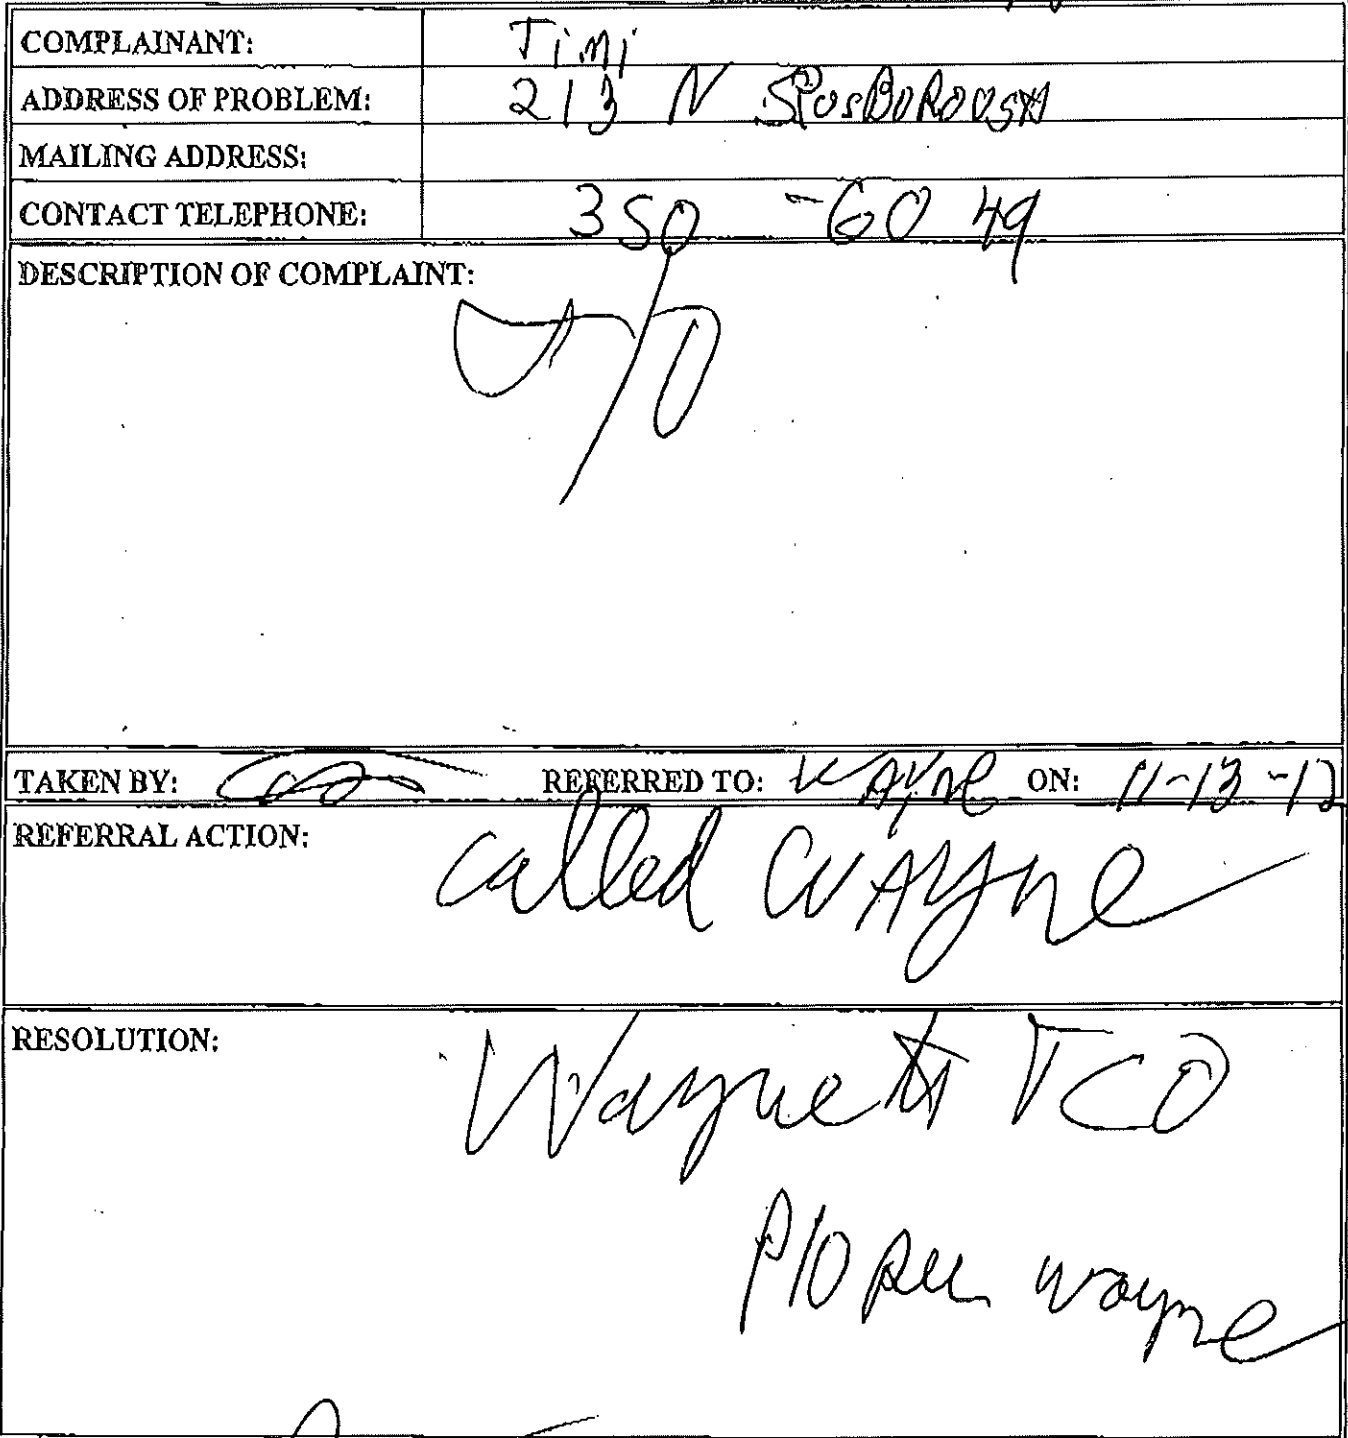 COMPLAINANT: Timi
ADDRESS OF PROBLEM: 213 N
MAILING ADDRESS:
CONTACT TELEPHONE: 350-6049
DESCRIPTION OF COMPLAINT:
TAKEN BY: REFERRED TO: WAYNE ON: 11-13-12
REFERRAL ACTION: Called WAYNE
RESOLUTION: Wayne TCO
P/O per wayne